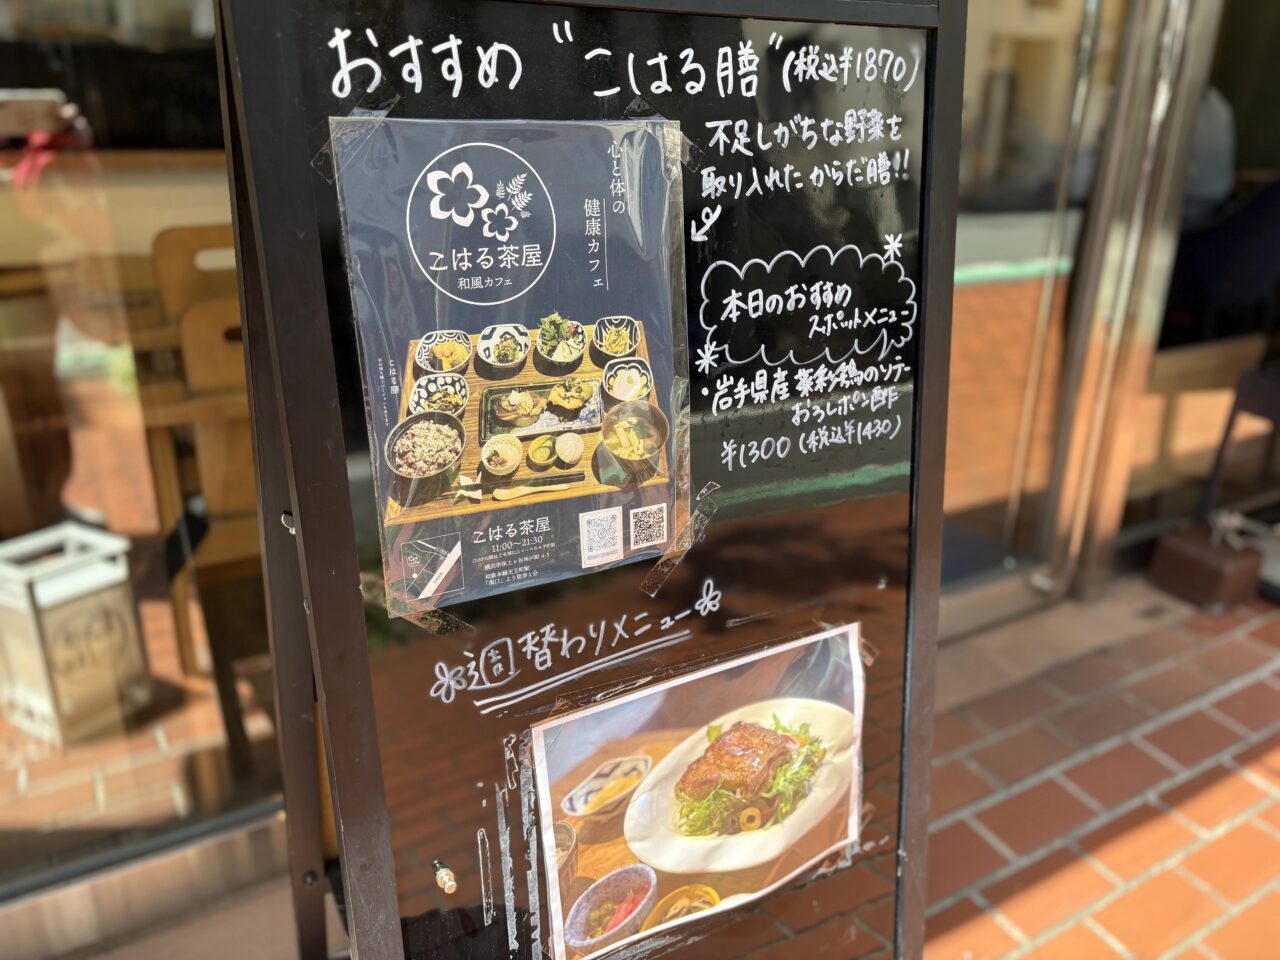 おすすめ "こはる膳" (税込¥1870)
不足しがちな野菜を
取り入れた からだ膳!!
心と体の
健康カフェ
こはる茶屋
和風カフェ
本日のおすすめ
スポットメニュー
・岩手県産 菜彩鶏のソテー
おろしポン酢
¥1300 (税込¥1430)
こはる膳
こはる茶屋
11:00〜21:30
横浜市保土ヶ谷神戸町 4-5
相鉄本線天王町駅
「南口」より徒歩1分
週替わりメニュー